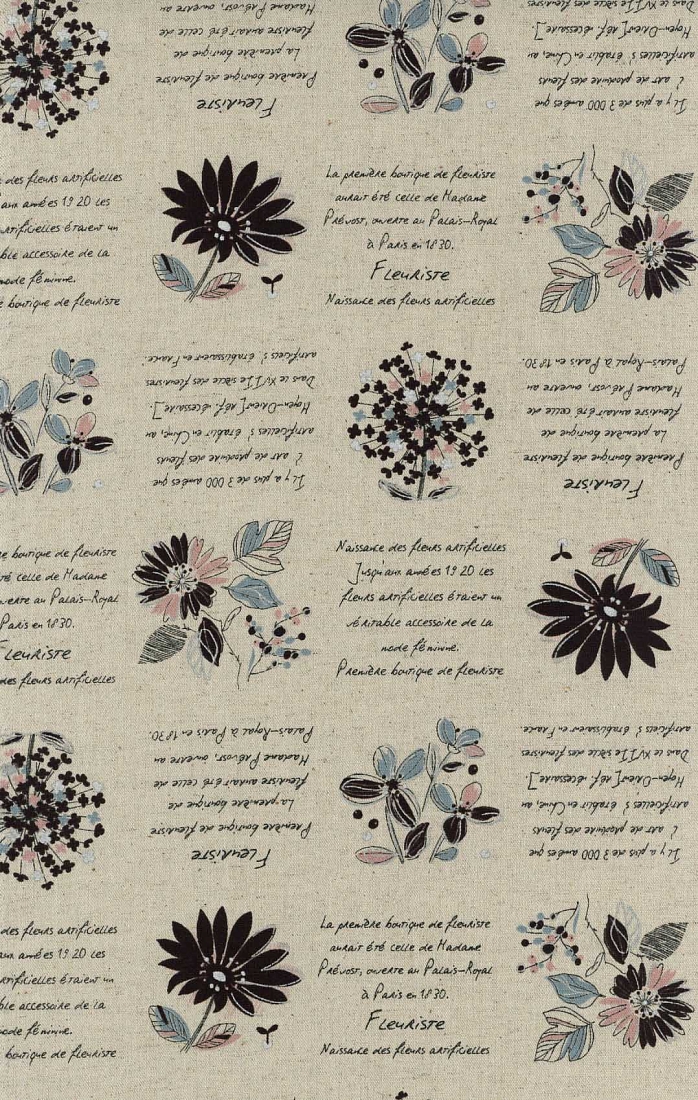 Fleuriste
Première boutique de fleuriste
La première boutique de
fleuriste aurait été celle de
Madame Prévost, ouverte au
Il y a plus de 3 000 années que
l'art de produire des fleurs
artificielles s'établit en Chine, au
Moyen-Orient [réf. nécessaire].
Dans le XVIIe siècle des fleuristes
des fleurs artificielles
aux années 1920 les
artificielles étaient un
ble accessoire de la
mode féminine.
e boutique de fleuriste
La première boutique de fleuriste
aurait été celle de Madame
Prévost, ouverte au Palais-Royal
à Paris en 1830.
Fleuriste
Naissance des fleurs artificielles
Il y a plus de 3 000 années que
l'art de produire des fleurs
artificielles s'établit en Chine, au
Moyen-Orient [réf. nécessaire].
Dans le XVIIe siècle des fleuristes
artificiels s'établissaient en France.
Fleuriste
Première boutique de fleuriste
La première boutique de
fleuriste aurait été celle de
Madame Prévost, ouverte au
Palais-Royal à Paris en 1830.
re boutique de fleuriste
té celle de Madame
uverte au Palais-Royal
Paris en 1830.
Fleuriste
des fleurs artificielles
Naissance des fleurs artificielles
Jusqu'aux années 1920 les
fleurs artificielles étaient un
véritable accessoire de la
mode féminine.
Première boutique de fleuriste
Fleuriste
Première boutique de fleuriste
La première boutique de
fleuriste aurait été celle de
Madame Prévost, ouverte au
Palais-Royal à Paris en 1830.
Il y a plus de 3 000 années que
l'art de produire des fleurs
artificielles s'établit en Chine, au
Moyen-Orient [réf. nécessaire].
Dans le XVIIe siècle des fleuristes
artificiels s'établissaient en France.
des fleurs artificielles
aux années 1920 les
artificielles étaient un
ble accessoire de la
mode féminine.
boutique de fleuriste
La première boutique de fleuriste
aurait été celle de Madame
Prévost, ouverte au Palais-Royal
à Paris en 1830.
Fleuriste
Naissance des fleurs artificielles